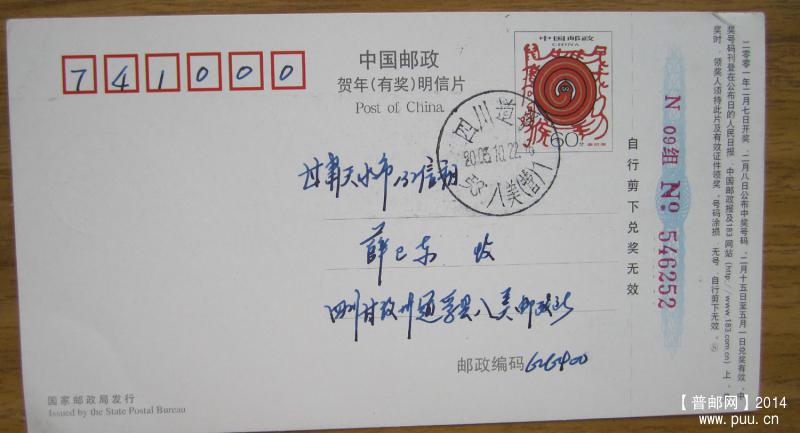 741000
中国邮政
贺年(有奖)明信片
Post of China
中国邮政
CHINA
60分
四川道孚
2005.10.22
八美(营)1
甘肃天水市132信箱
薛已东 收
四川甘孜州道孚县八美邮政所
邮政编码 626400
国家邮政局发行
Issued by the State Postal Bureau
自行剪下兑奖无效
N 09组 No: 546252
二零零一年二月七日开奖,二月八日公布中奖号码,二月十五日至五月一日兑奖有效,中
奖号码刊登在公布日的人民日报、中国邮政报及183网站(http://www.183.com.cn)上,
奖时,领奖人须持此片及有效证件领奖。号码涂损、无号、自行剪下无效。
【普邮网】2014
www.puu.cn